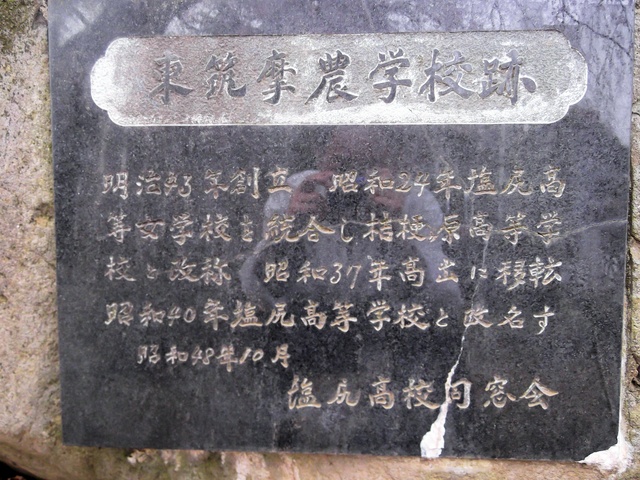 東筑摩農学校跡
明治43年創立 昭和24年塩尻高
等女学校を統合し桔梗原高等学
校と改称 昭和37年高出に移転
昭和40年塩尻高等学校と改名す
昭和48年10月
塩尻高校同窓会